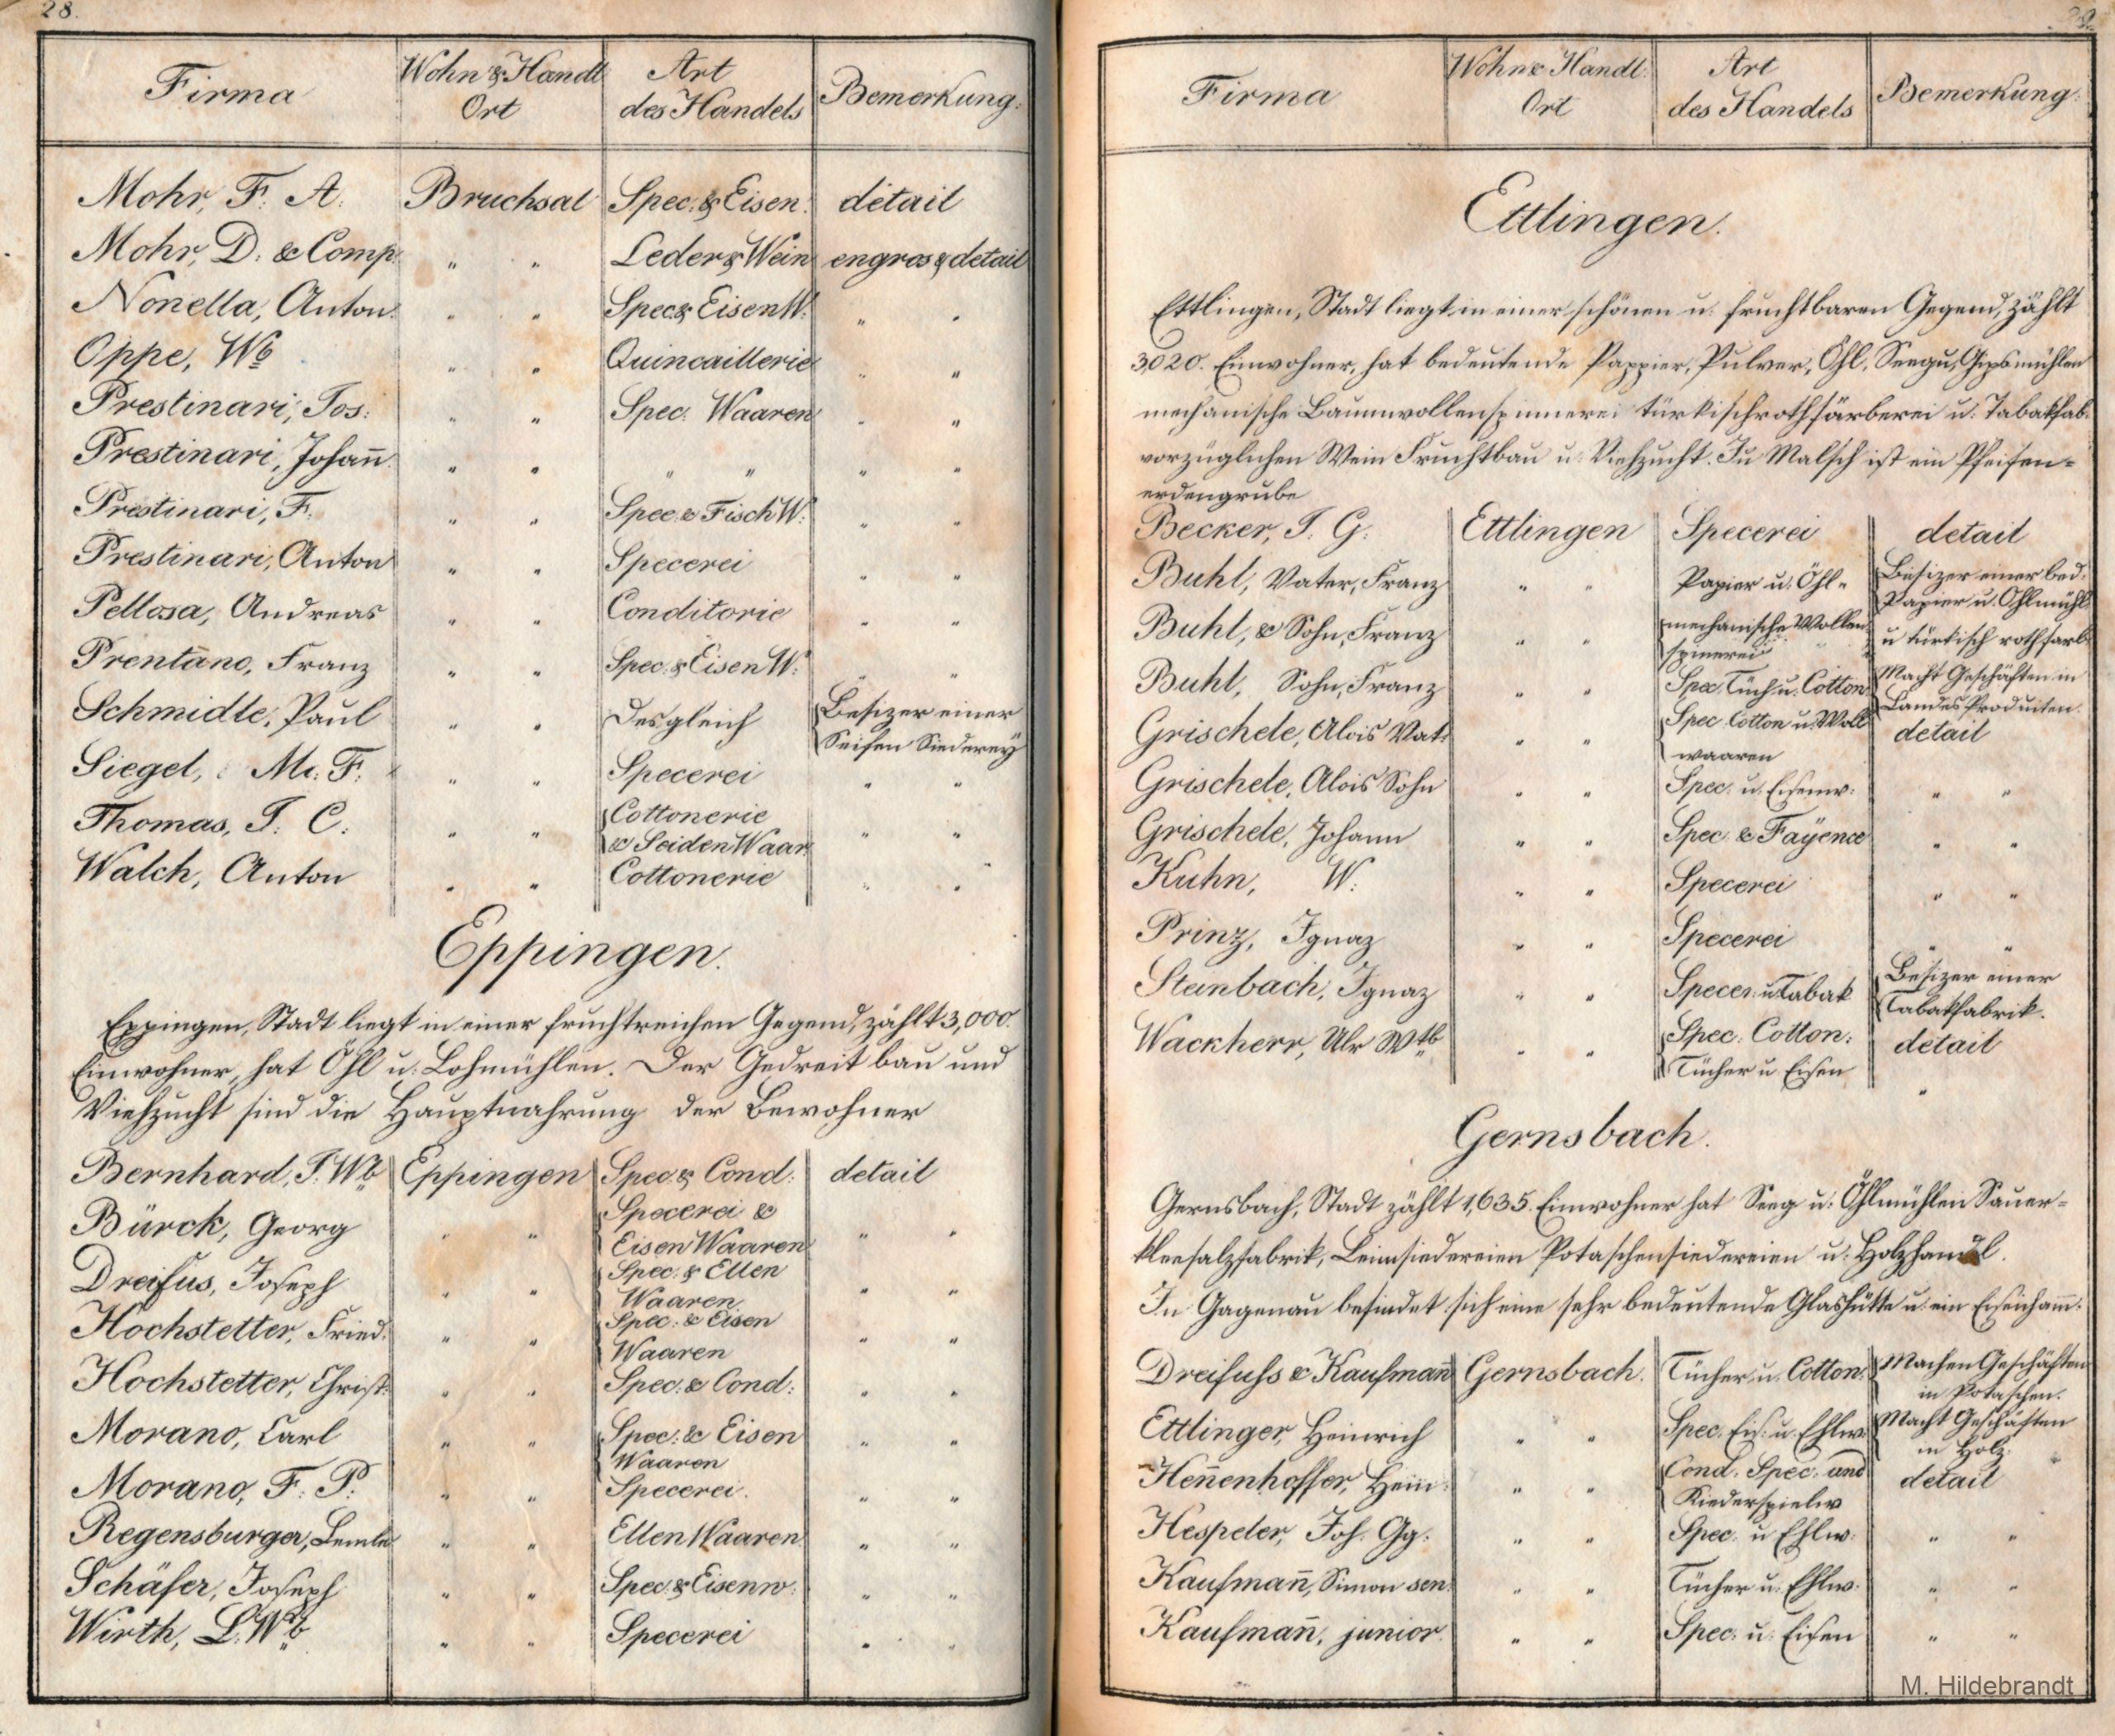 28.
Firma Wohn & Handl Ort Art des Handels Bemerkung.
Mohr, F. A. Bruchsal Spec. & Eisen. détail
Mohr, D. & Comp. " " Leder & Wein engros & detail
Nonella, Anton. " " Spec & Eisen W. " "
Oppe, Wb " " Quincaillerie " "
Prestinari, Jos: " " Spec. Waaren " "
Prestinari, Johañ " " " " " "
Prestinari, F. " " Spec. & Fisch W. " "
Prestinari, Anton " " Specerei " "
Pellosa, Andreas " " Conditorie " "
Prentano, Franz " " Spec. & Eisen W. " "
Schmidle, Paul " " Desgleich Besizer einer
Seifen Siederey
Siegel, M. F. " " Specerei " "
Thomas, J. C. " " Cottonerie
& Seiden Waar. " "
Walch, Anton " " Cottonerie " "
Eppingen.
Eppingen, Stadt liegt in einer fruchtreichen Gegend, zählt 3,000.
Einwohner, hat Öhl u. Lohmühlen. Der Gedreit bau und
Viehzucht sind die Hauptnahrung der Bewohner
Bernhard, J. Wb Eppingen Spec & Cond. detail
Bürck, Georg " " Specerei &
Eisen Waaren " "
Dreifus, Joseph " " Spec. & Ellen
Waaren. " "
Hochstetter, Fried. " " Spec. & Eisen
Waaren " "
Hochstetter, Christ. " " Spec. & Cond: " "
Morano, Carl " " Spec. & Eisen
Waaren " "
Morano, F. P. " " Specerei. " "
Regensburger, Lemle " " Ellen Waaren. " "
Schäfer, Joseph " " Spec. & Eisenw. " "
Wirth, L. Wb " " Specerei " "
29.
Firma Wohn & Handl. Ort Art des Handels Bemerkung.
Ettlingen.
Ettlingen, Stadt liegt in einer schönen u. fruchtbaren Gegend, zählt
3,020. Einwohner, hat bedeutende Pappier, Pulver, Öhl, Seegu, Gipsmühlen
mechanische Baumwollenspinnerei türkischrothfärberei u. Tabakfab.
vorzüglichen Wein Fruchtbau u. Viehzucht. In Malsch ist ein Pfeifen-
erdengrube
Becker, J. G. Ettlingen Specerei detail
Buhl, Vater, Franz " " Papier u. Öhl- Besizer einer bed.
Papier u. Öhlmühl.
Buhl, & Sohn, Franz " " mechanische Wollen
spinerei u türkisch rothfarb.
Buhl, Sohn, Franz " " Spec. Tüch u. Cotton Macht Geschäften in
Landes Produiten.
Grischele, Alois Vat. " " Spec Cotton u. Woll
waaren detail
Grischele, Alois Sohn " " Spec. u. Eisenw. " "
Grischele, Johann " " Spec. & Fayence " "
Kuhn, W. " " Specerei " "
Prinz, Ignaz " " Specerei " "
Steinbach, Ignaz " " Specer. u Tabak Besizer einer
Tabakfabrik.
Wackherr, Ulr Wtb " " Spec. Cotton:
Tücher u Eisen detail
"
Gernsbach.
Gernsbach, Stadt zählt 1,635. Einwohner hat Seeg u. Öhlmühlen Sauer-
kleesalzfabrik, Leimsiedereien Potaschensiedereien u. Holzhandel.
In Gagenau befindet sich eine sehr bedeutende Glashütte u. ein Eiseinham̄.
Dreifuss & Kaufmañ Gernsbach. Tücher u. Cotton. Machen Geschäften
in Potaschen.
Ettlinger, Heinrich " " Spec. Eis. u. Ehlw. Macht Geschäften
in Holz.
Heñenhoffer, Hein. " " Cond. Spec. und
Kiederspielw detail
Hespeler, Joh. Gg. " " Spec. u Ehlw. " "
Kaufmañ, Simon sen. " " Tücher u. Ehlw. " "
Kaufmañ, junior. " " Spec. u. Eisen " "
M. Hildebrandt